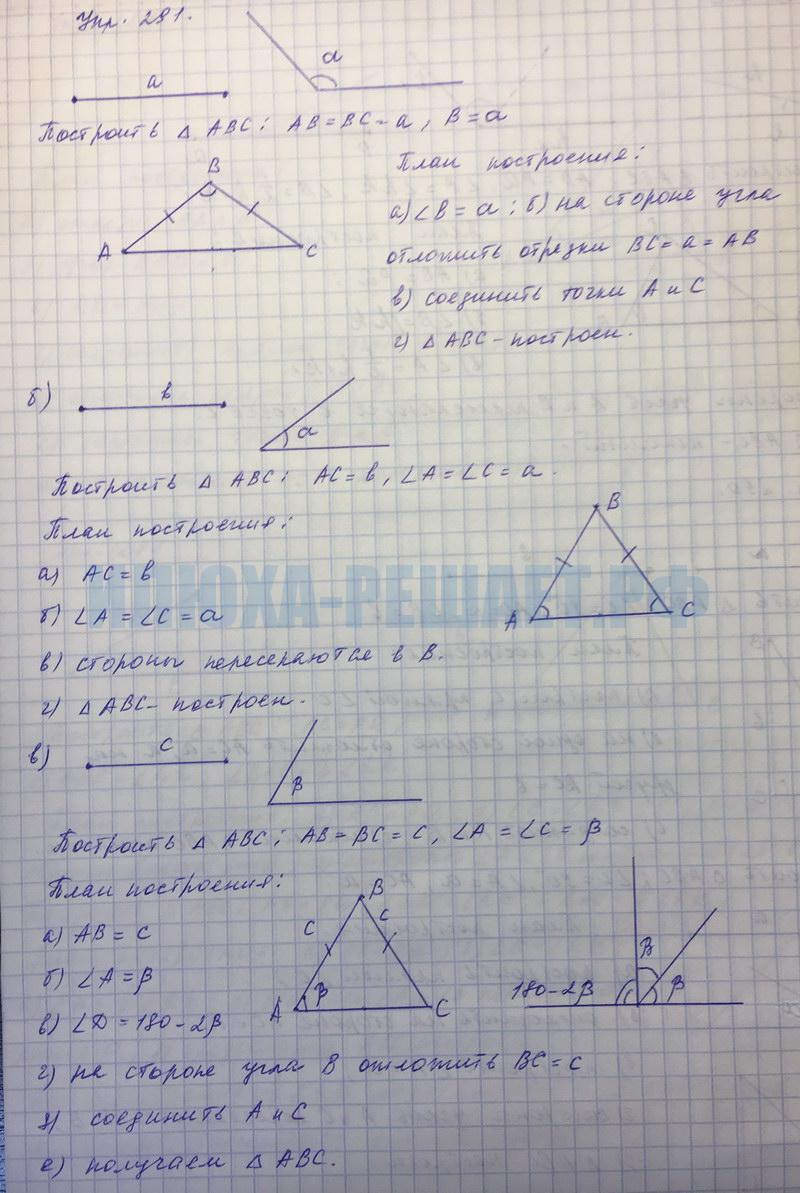 Упр. 291.
a
α
Построить △ ABC: AB=BC=a, B=α
B
A
C
План построения:
а) ∠B=α; б) на стороне угла
отложить отрезки BC=a=AB
в) соединить точки A и C
г) △ABC - построен.
б)
в
α
Построить △ ABC: AC=в, ∠A=∠C=α.
План построения:
а) AC=в
б) ∠A=∠C=α
в) стороны пересекаются в B.
г) △ABC - построен.
B
A
C
ИЛЮХА-РЕШАЕТ.РФ
в)
c
β
Построить △ ABC: AB=BC=C, ∠A=∠C=β
План построения:
а) AB=C
б) ∠A=β
в) ∠D=180-2β
г) на стороне угла B отложить BC=C
д) соединить A и C
е) получаем △ABC.
B
C
C
A
β
C
β
180-2β
β